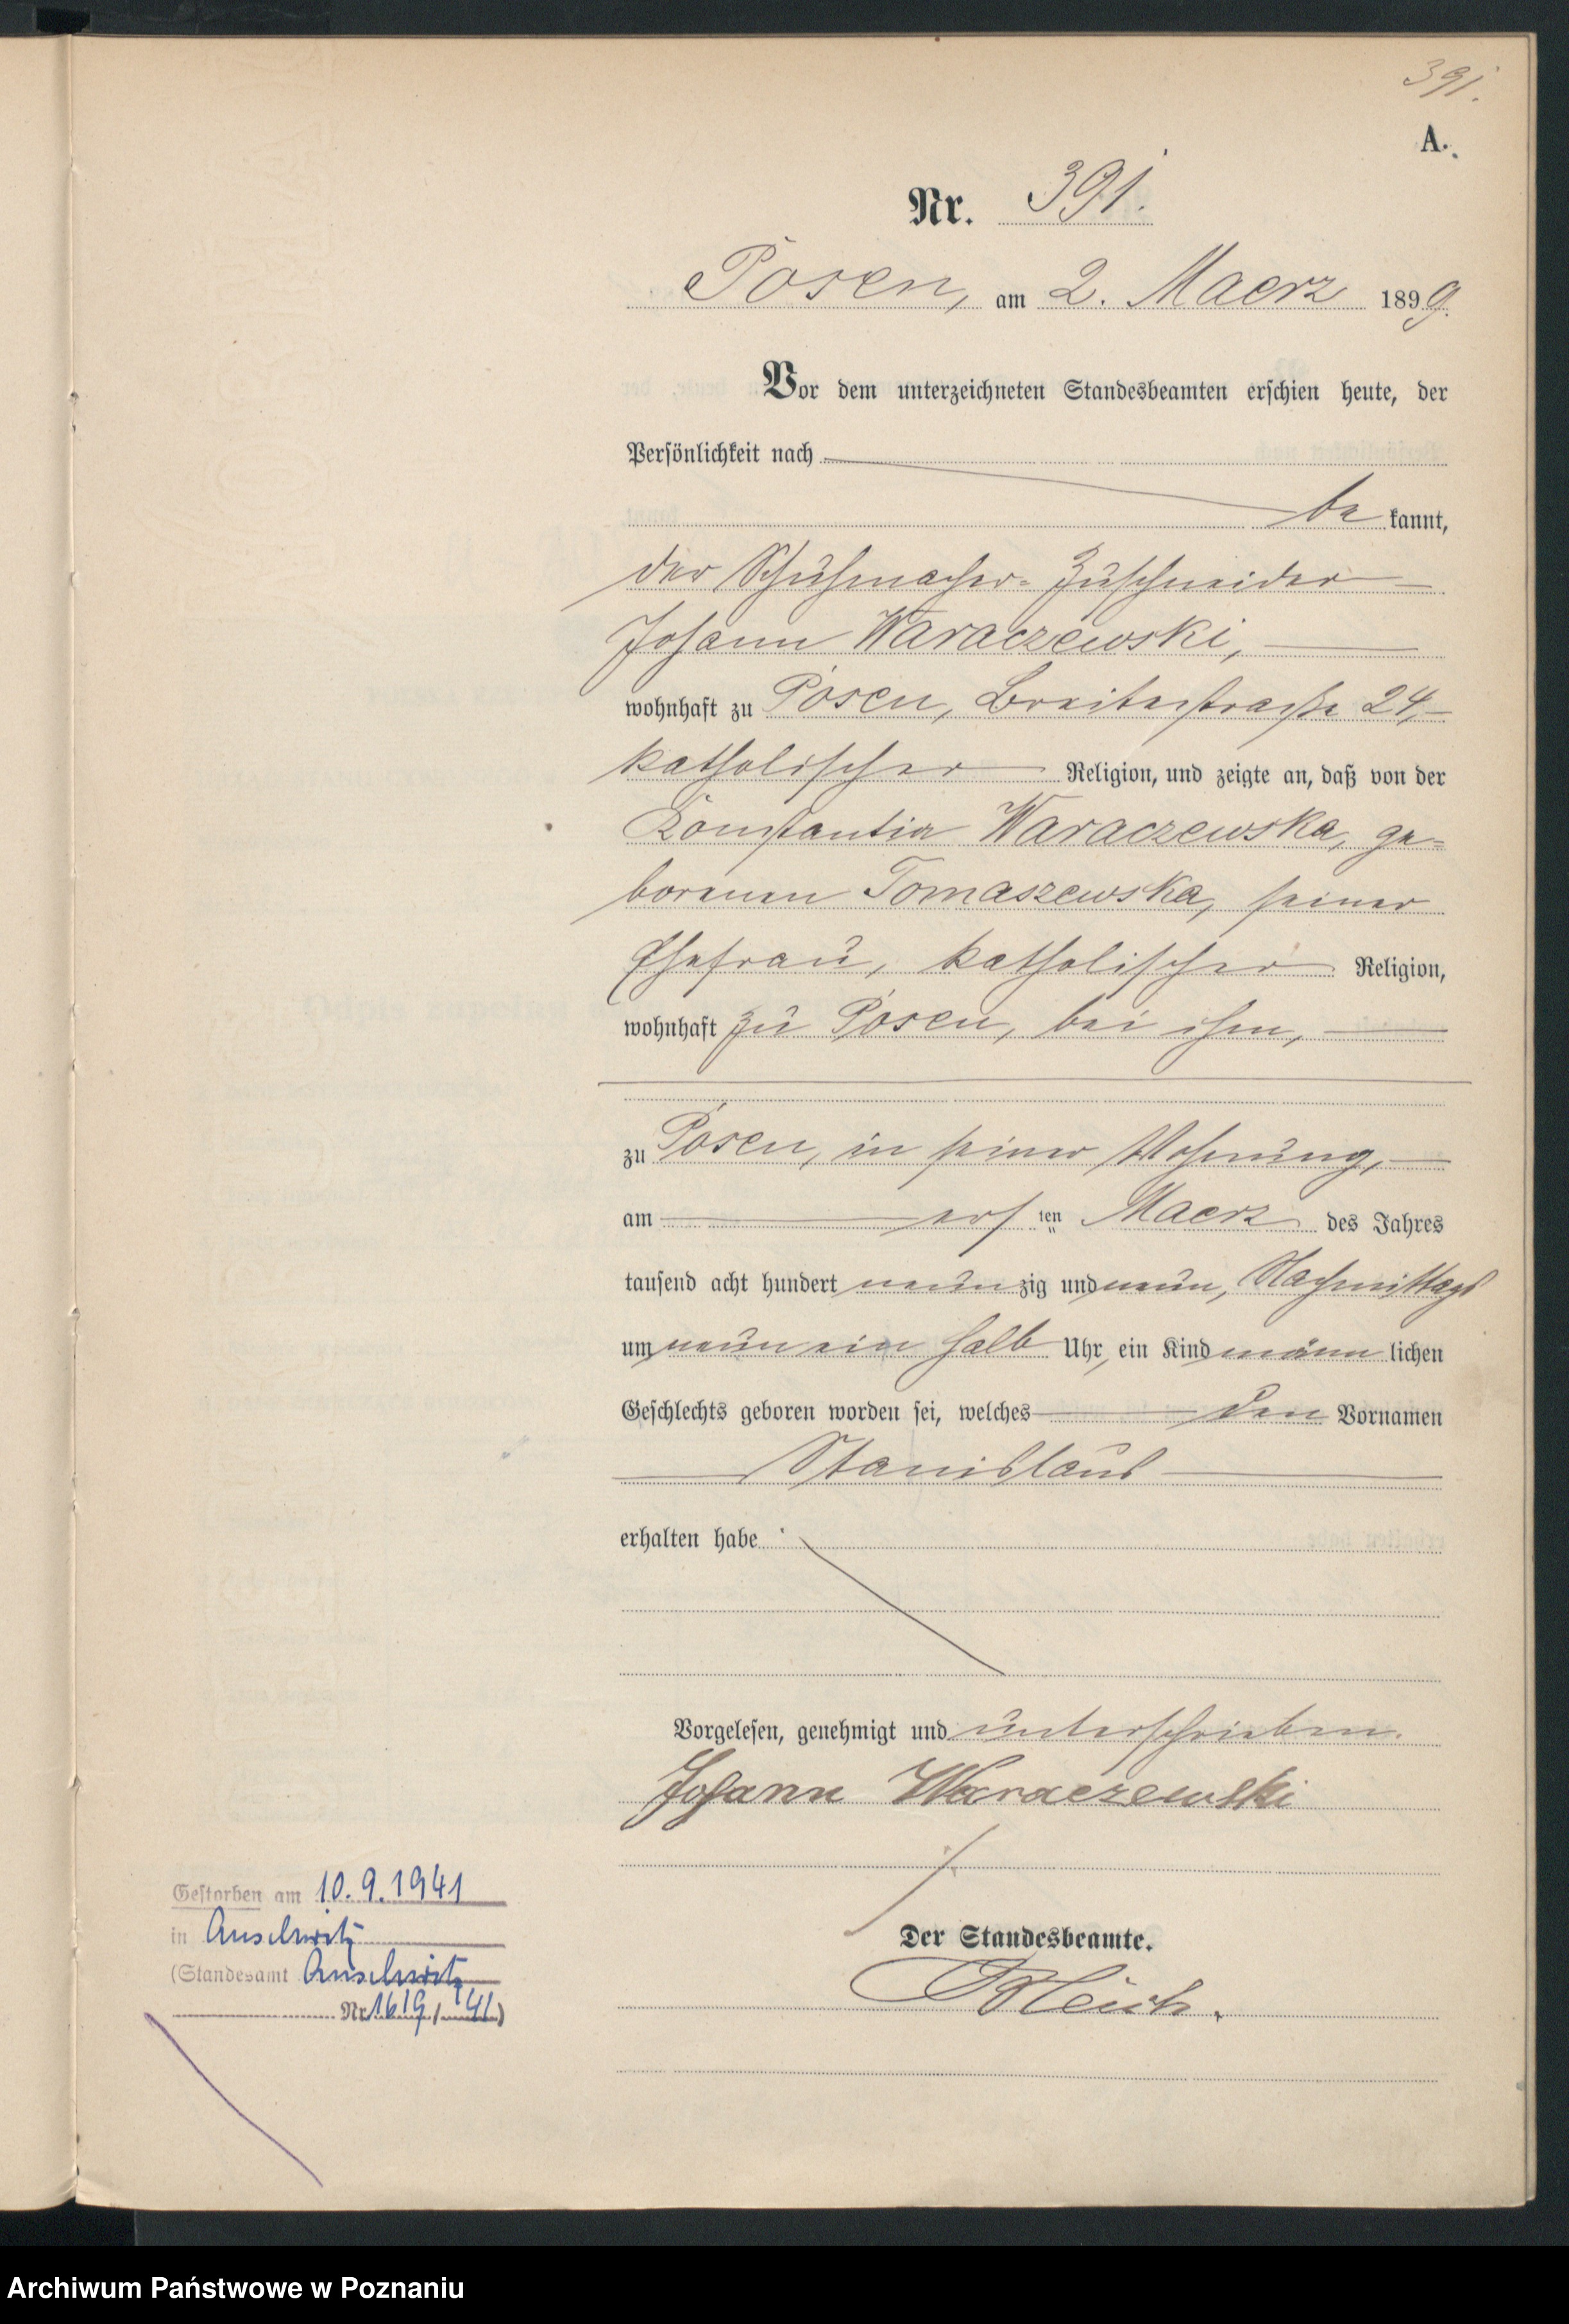 391.
A.
Nr. 391.
Posen, am 2. Maerz 1899.
Vor dem unterzeichneten Standesbeamten erschien heute, der
Persönlichkeit nach
be kannt,
der Schuhmacher-Zuschneider
Johann Waraczewski,
wohnhaft zu Posen, Breitestraße 24,
katholischer Religion, und zeigte an, daß von der
Konstantia Waraczewska, ge-
borenen Tomaszewska, seiner
Ehefrau, katholischer Religion,
wohnhaft zu Posen, bei ihm,
zu Posen, in seiner Wohnung,
am ersten Maerz des Jahres
tausend acht hundert neunzig und neun, Nachmittags
um neun ein halb Uhr, ein Kind männlichen
Geschlechts geboren worden sei, welches den Vornamen
Stanislaus
erhalten habe
Vorgelesen, genehmigt und unterschrieben.
Johann Waraczewski
Der Standesbeamte.
Gestorben am 10.9.1941
in Auschwitz
(Standesamt Auschwitz
Nr. 1619/41)
Archiwum Państwowe w Poznaniu